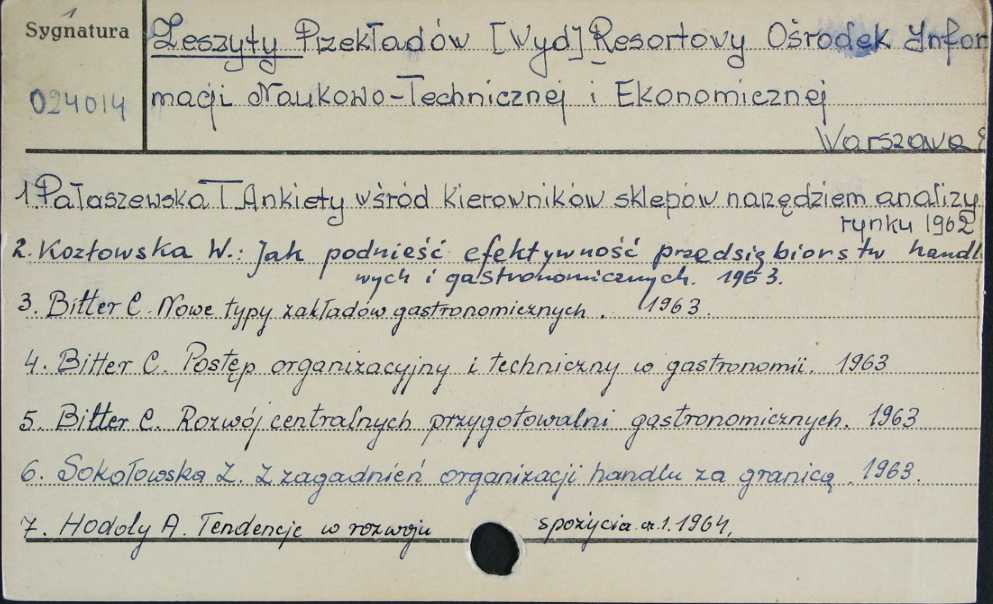 Sygnatura
024014
Zeszyty Przekładów [Wyd] Resortowy Ośrodek Infor
macji Naukowo-Technicznej i Ekonomicznej
Warszawa
1. Pałaszewska T Ankiety wśród kierowników sklepów narzędziem analizy
rynku 1962
2. Kozłowska W.: Jak podnieść efektywność przedsiębiorstw handlo
wych i gastronomicznych. 1963.
3. Bitter C. Nowe typy zakładów gastronomicznych. 1963.
4. Bitter C. Postęp organizacyjny i techniczny w gastronomii. 1963
5. Bitter C. Rozwój centralnych przygotowalni gastronomicznych. 1963
6. Sokołowska Z. Z zagadnień organizacji handlu za granicą. 1963.
7. Hodoly A. Tendencje w rozwoju spożycia cz. 1. 1964.